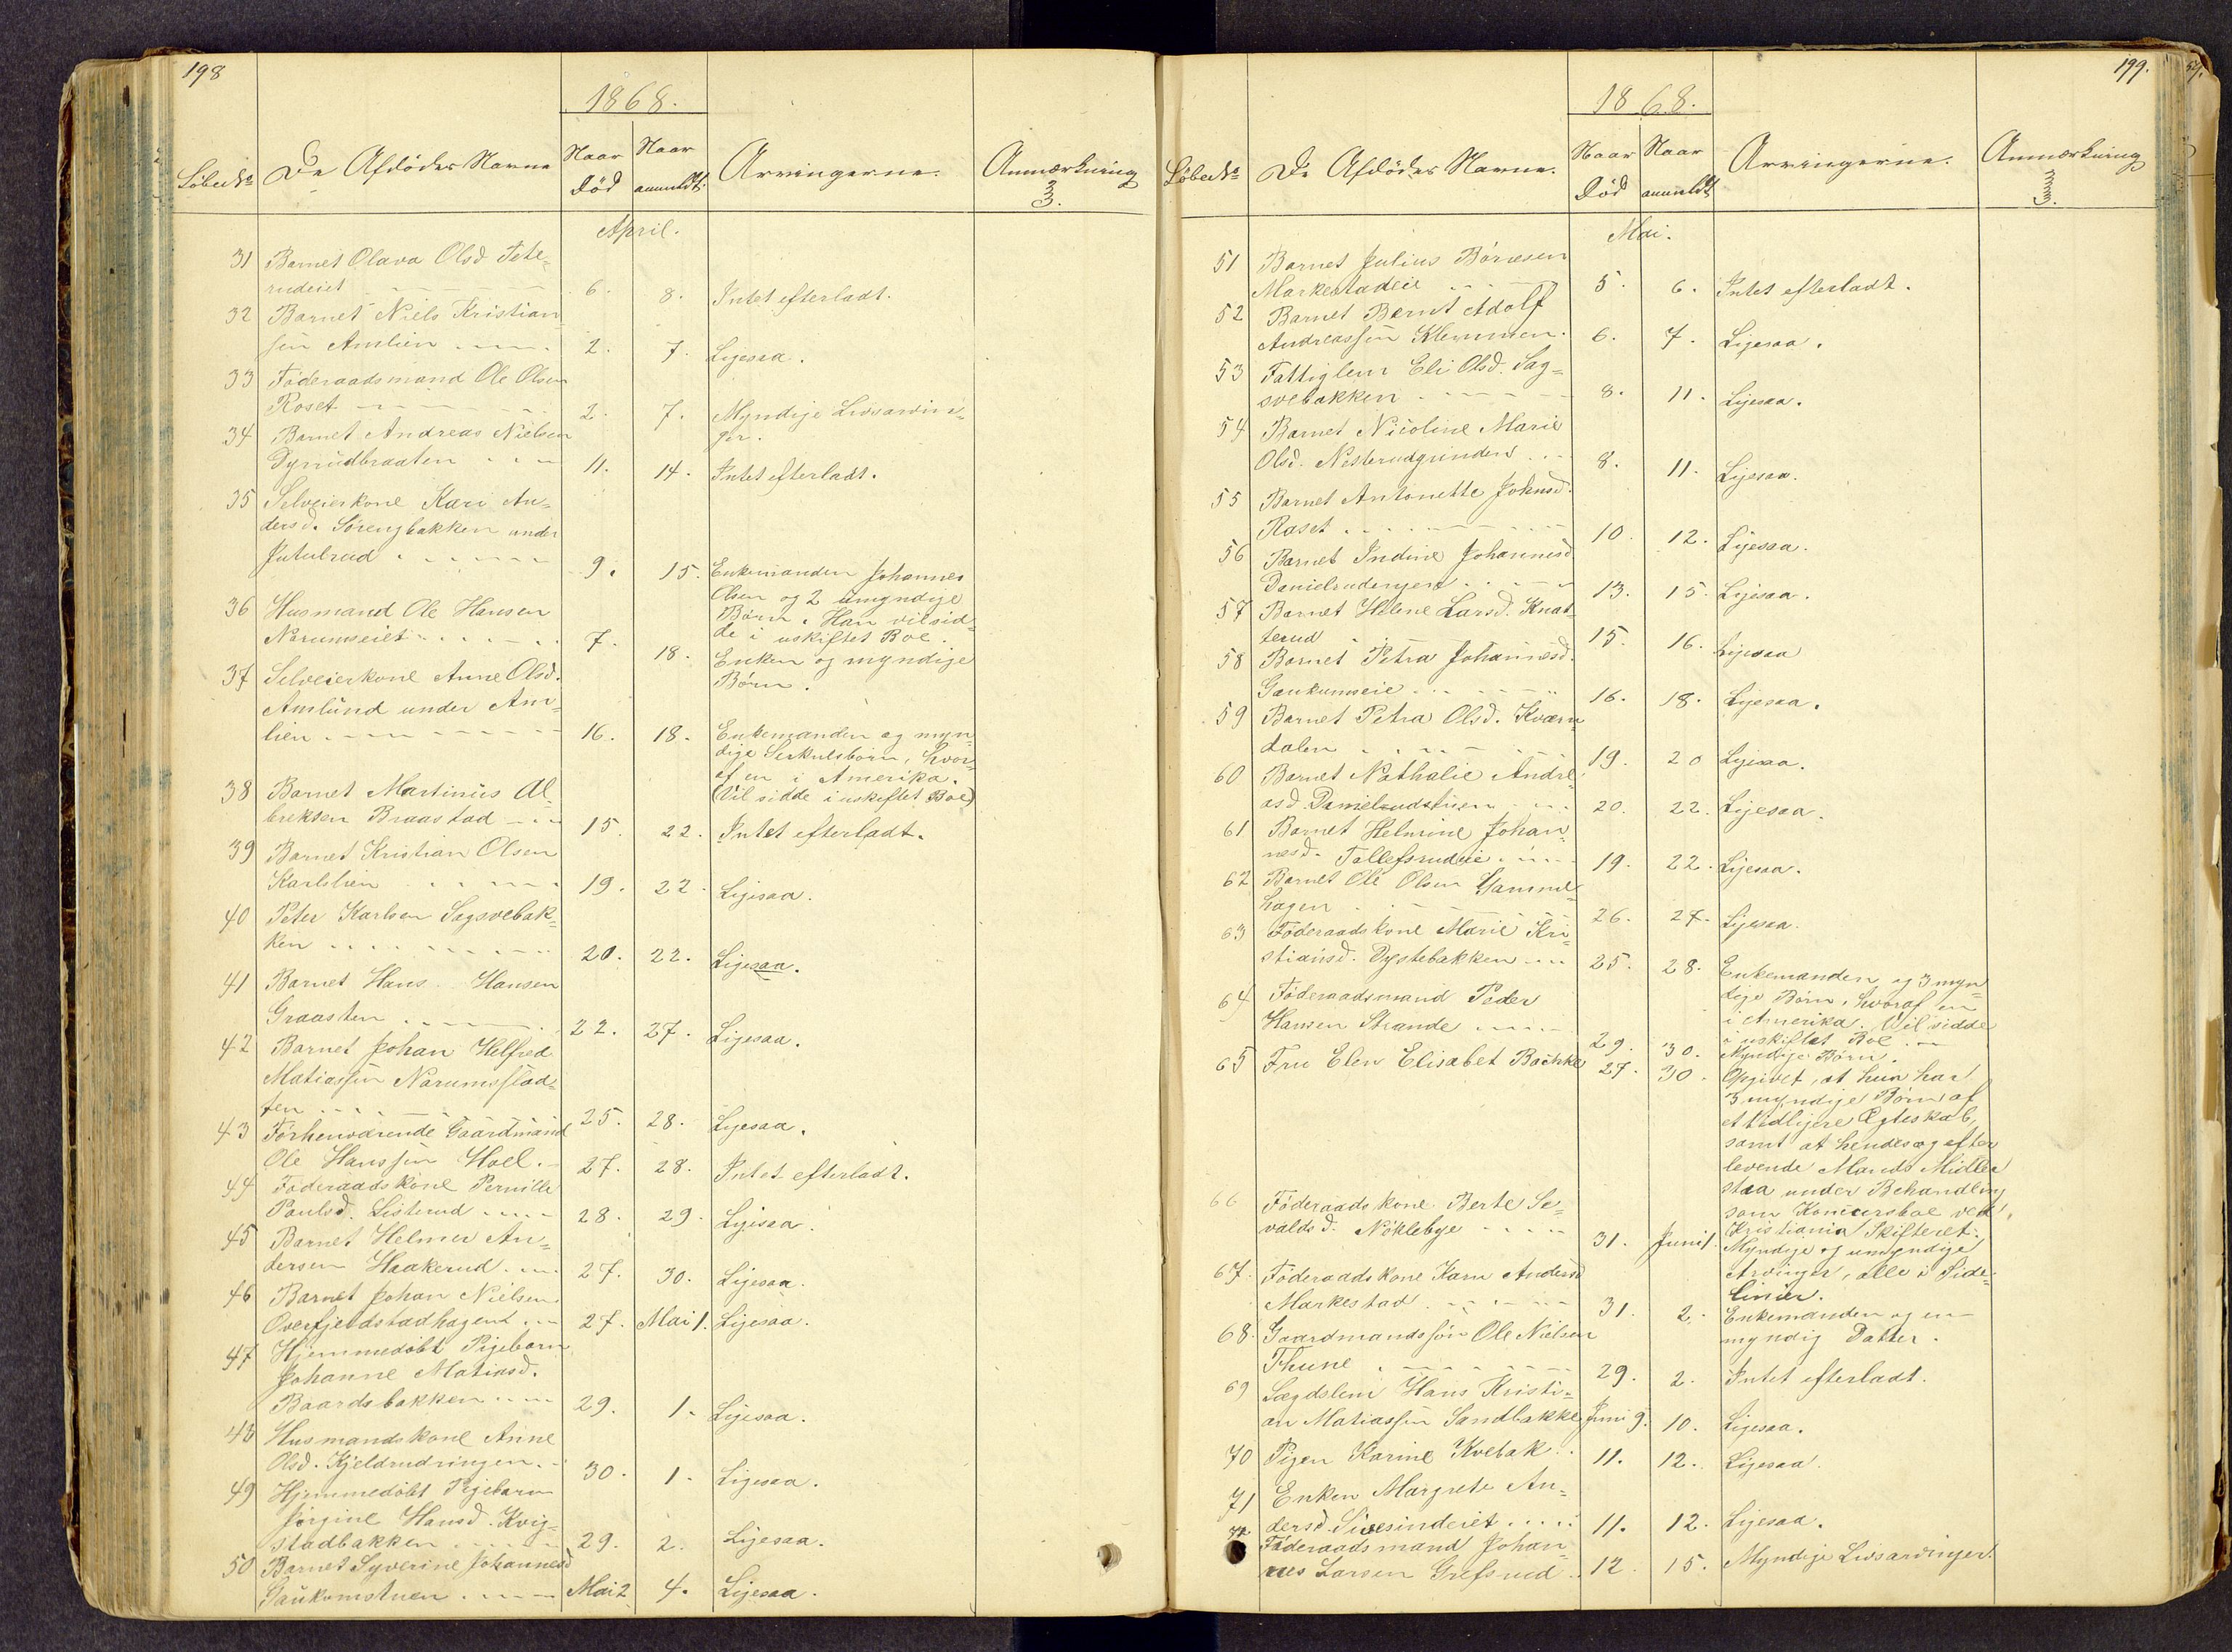 198
1868.
Löbeno De Afdödes Navne Naar Död Naar anmeldt. Arvingerne. Anmærkning
April.
31 Barnet Olava Olsd. Pete=
rudeiet 6. 8. Intet efterladt.
32 Barnet Niels Kristian
sen Amlien 2. 7. Ligesaa.
33 Föderaadsmand Ole Olsen
Roset 2. 7. Myndige Livsarvin=
ger.
34 Barnet Andreas Nielsen
Dyrrudbraaten 11. 14. Intet efterladt.
35 Selveierkone Kari An=
dersd. Sörengbakken under
Jutulrud 9. 15. Enkemanden Johannes
Olsen og 2 umyndige
Börn. Han vil sid=
de i uskiftet Boe.
36 Husmand Ole Hansen
Narumseiet 7. 18. Enken og myndige
Börn.
37 Selveierkone Anne Olsd.
Amlund under Am=
lien 16. 18. Enkemanden og myn=
dige Særkulsbörn, hvor=
af en i Amerika.
(Vil sidde i uskiftet Boe)
38 Barnet Martinus Al=
breksen Braastad 15. 22. Intet efterladt.
39 Barnet Kristian Olsen
Karlslien 19. 22. Ligesaa.
40 Peter Karlsen Sagsvebak=
ken 20. 22. Ligesaa.
41 Barnet Hans Hansen
Graasten 22. 27. Ligesaa.
42 Barnet Johan Helfred
Matiassen Narumsflad=
ten 25. 28. Ligesaa.
43 Forhenværende Gaardmand
Ole Hanssen Hoel. 27. 28. Intet efterladt.
44 Föderaadskone Pernille
Paulsd. Listerud 28. 29. Ligesaa.
45 Barnet Helmer An=
dersen Haakerud. 27. 30. Ligesaa.
46 Barnet Johan Nielsen
Overfjeldstadhagen 27. Mai 1. Ligesaa.
47 Hjemmedöbt Pigebarn
Johanne Matiasd.
Baardsbakken 29. 1. Ligesaa.
48 Husmandskone Anne
Olsd. Kjeldrudringen. 30. 1. Ligesaa.
49 Hjemmedöbt Pigebarn
Jörgine Hansd. Kvig=
stadbakken 29. 2. Ligesaa.
50 Barnet Syverine Johannesd
Gaukomstuen Mai 2 4. Ligesaa.
199.
1868.
Löbeno De Afdödes Navne. Naar Död Naar anmeldt Arvingerne. Anmærkning
Mai.
51 Barnet Julius Börresen
Markestadeie 5. 6. Intet efterladt.
52 Barnet Bernt Adolf
Andreassen Klemmen. 6. 7. Ligesaa.
53 Fattiglem Eli Olsd. Sag=
svebakken 8. 11. Ligesaa.
54 Barnet Nicoline Marie
Olsd. Nesterudgunders 8. 11. Ligesaa.
55 Barnet Antonette Johnsd.
Raset 10. 12. Ligesaa.
56 Barnet Indine Johannesd
Danielsudengen 13. 15. Ligesaa.
57 Barnet Helene Larsd. Knat=
terud 15. 16. Ligesaa
58 Barnet Petra Johannesd.
Gaukumseie 16. 18. Ligesaa.
59 Barnet Petra Olsd. Kværn
dalen 19. 20 Ligesaa.
60 Barnet Nathalie Andre
asd. Danielsudstuen 20. 22. Ligesaa.
61 Barnet Helmine Johan
nesd. Tollefsrudeie. 19. 22. Ligesaa.
62 Barnet Ole Olsen Gammel=
hagen 26. 27. Ligesaa.
63 Föderaadskone Marie Kri=
stiansd. Dystebakken 25. 28. Enkemanden og 3 myn=
dige Börn, hvoraf en
i Amerika. Vil sidde
i uskiftet Boe.
64 Föderaadsmand Peder
Hansen Strande 29. 30. Myndige Börn.
65 Fru Elen Elisabet Bachke 27. 30. Opgivet, at hun har
3 myndige Börn af
et tidligere Ægteskab,
samt at hendes og efter
levende Mands Midler
staa under Behandling
som Konkursboe ved
Kristiania Skifteret.
66 Föderaadskone Berte Se=
valdsd. Nöklebye 31. Juni 1. Myndige og umyndige
Arvinger, alle i Side=
linier.
67. Föderaadskone Karn Andersd
Markestad 31. 2. Enkemanden og en
myndig Datter.
68. Gaardmandssön Ole Nielsen
Thune 29. 2. Intet efterladt.
69 Lægdslem Hans Kristi=
an Matiassen Sandbakke Juni 9. 10. Ligesaa.
70 Pigen Karine Kvebak 11. 12. Ligesaa.
71 Enken Margrete An=
dersd. 11. 12. Ligesaa.
72 Föderaadsmand Johan
nes Larsen Grefsrud 12. 15. Myndige Livsarvinger.